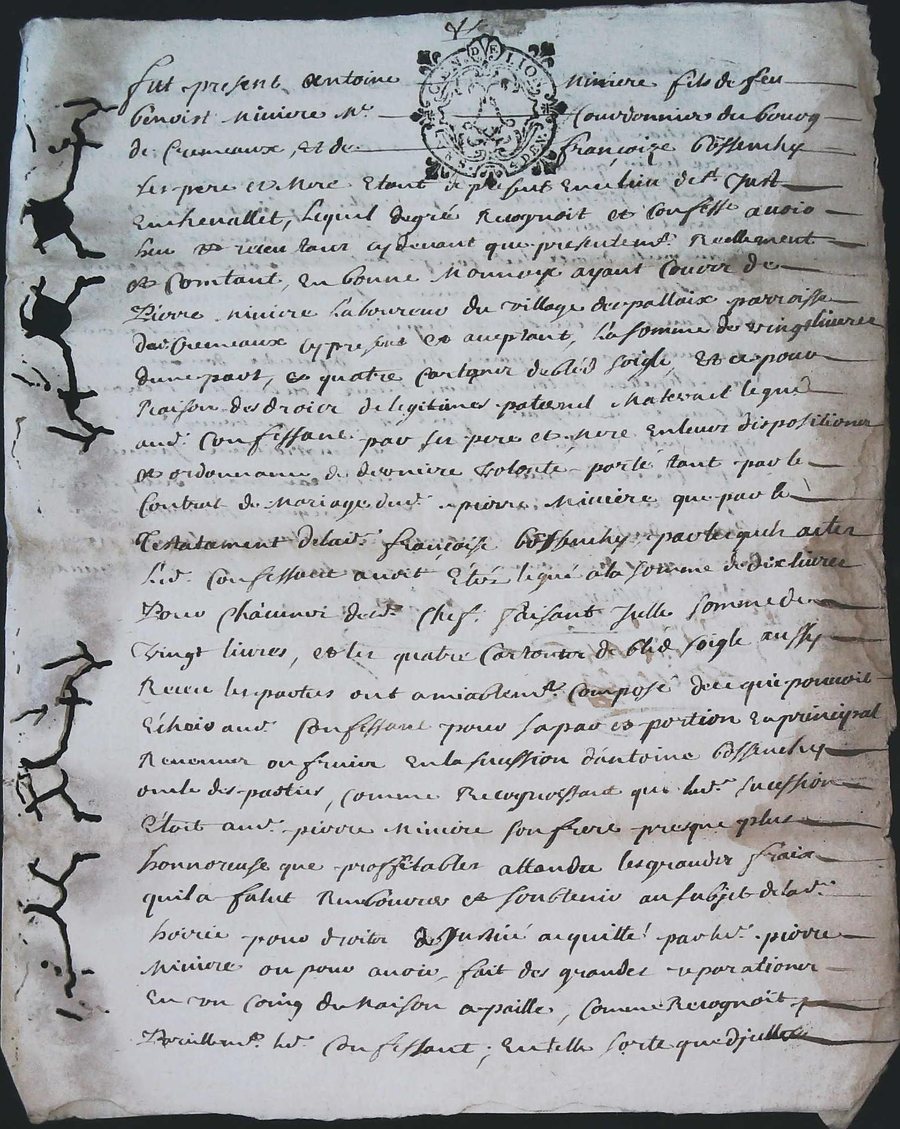 GEN. DE LION
fut present Antoine Miniere fils de feu
benoist Miniere Mr Courdonnier du bourg
de Cremeaux, et de françoise bossenchy
ses pere et Mere Etant de present En ce lieu de st Just
En chevallet, lequel degré Recognoit et Confesse avoir
heu et receu tant cydevant que presentemt Reellement
et Comtant, en bonne Monnoye ayant Cours de
Pierre Miniere Laboureur du village des pallaix parroisse
des Cremeaux cy present et aceptant, La somme de vingt livres
dune part, et quatre Cartons de bléd soigle, Et ce pour
Raison des droits de legitimes paternel Maternel legué
aud. Confessant par ses pere et Mere en leurs dispositions
et ordonnance de derniere volonté porté tant par le
Contrat de Mariage dud. pierre Miniere que par le
Testatament de lad. françoise bossenchy par lesquels actes
Led. Confessant avoit Etés legué a la somme de dix livres
Pour Chacun de ced. Chef. faisant Jelle somme de
vingt livres, et les quatre Cartons de bléd soigle aussy
Receu les parties ont amiablemt Composé de ce qui pouvoit
Echoir aud. Confessant pour sa par et portion En principal
Revenus ou fruits En la sucession d'antoine bossenchy
oncle des parties, Comme Recognoissant que lad. sucession
Etoit aud. pierre Miniere son frere presque plus
honnoreuse que proffitables attendu les grandes fraix
quil a falut Rembourser et soubtenir au subjet de lad.
hoirie pour droits de Justice acquitté par led. pierre
Miniere ou pour avoir fait des grandes reparations
En un Coing de Maison a paille, Comme Recognoit
Pareillemt led. Confessant; En telle sorte que d'jelle